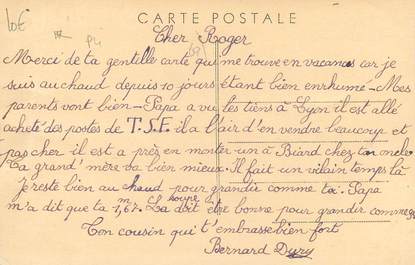 10€
CARTE POSTALE
Cher Roger
Merci de ta gentille carte qui me trouve en vacances car je
suis au chaud depuis 10 jours étant bien enrhumé - Mes
parents vont bien - Papa a vu les tiens à Lyon il est allé
acheté des postes de T.S.F. il a l'air d'en vendre beaucoup et
pas cher il est a près en monter un à Biard chez ton oncle
Ta grand'mère va bien mieux. Il fait un vilain temps là
je reste bien au chaud pour grandir comme toi. Papa
m'a dit que ta 1,m67. La soupe doit être bonne pour grandir comme ça
Ton cousin qui t'embrasse bien fort
Bernard